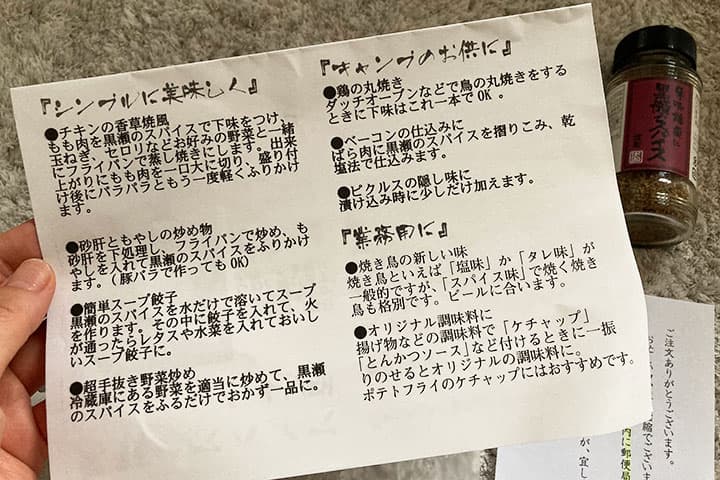 『シンプルに美味しく』
●チキンの香草焼風
もも肉を黒瀬のスパイスで下味をつけ、
玉ねぎ、セロリなどお好みの野菜と一緒
にフライパンで蒸し焼きにします。出来
上がりにもも肉を一口大に切り、盛り付
け後にパラパラともう一度軽くふりかけ
ます。
●砂肝ともやしの炒め物
砂肝を下処理し、フライパンで炒め、も
やしを入れて黒瀬のスパイスをふりかけ
ます。(豚バラで作ってもOK)
●簡単スープ餃子
黒瀬のスパイスを水だけで溶いてスープ
を作ります。その中に餃子を入れて、火
が通ったらレタスや水菜を入れておいし
いスープ餃子に。
●超手抜き野菜炒め
冷蔵庫にある野菜を適当に炒めて、黒瀬
のスパイスをふるだけでおかず一品に。
『キャンプのお供に』
●鶏の丸焼き
ダッチオーブンなどで鳥の丸焼きをする
ときに下味はこれ一本でOK。
●ベーコンの仕込みに
ばら肉に黒瀬のスパイスを摺りこみ、乾
塩法で仕込みます。
●ピクルスの隠し味に
漬け込み時に少しだけ加えます。
『業務用に』
●焼き鳥の新しい味
焼き鳥といえば「塩味」か「タレ味」が
一般的ですが、「スパイス味」で焼く焼き
鳥も格別です。ビールに合います。
●オリジナル調味料に
揚げ物などの調味料で「ケチャップ」
「とんかつソース」など付けるときに一振
りのせるとオリジナルの調味料に。
ポテトフライのケチャップにはおすすめです。
黒瀬のスパイス
ご注文ありがとうございます。
縮でございま
内に郵便局
が、宜し